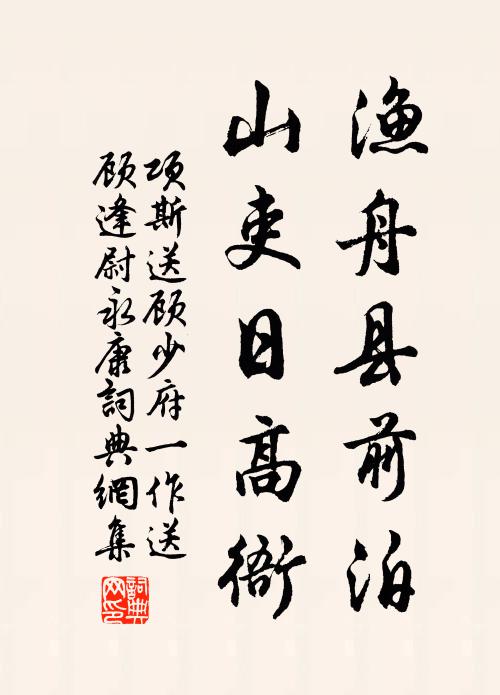 渔舟县前泊
山吏日高衙
项斯送顾少府一作送
顾逢尉永康词典网集
詞典網印